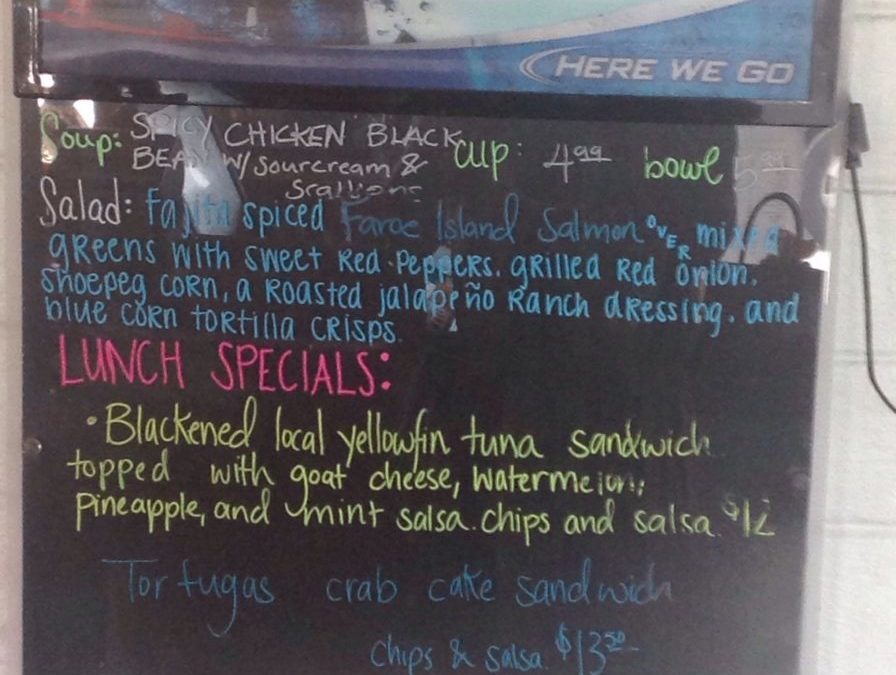 HERE WE GO
Soup: SPICY CHICKEN BLACK cup: 4.99 bowl 5.99
BEAN W/ sourcream &
Scallions
Salad: fajita spiced Faroe Island Salmon OVER mixed
greens with sweet Red Peppers, grilled Red onion,
shoepeg corn, a Roasted jalapeño Ranch dressing, and
blue corn tortilla crisps.
LUNCH SPECIALS:
• Blackened local yellowfin tuna sandwich
topped with goat cheese, watermelon,
pineapple, and mint salsa. chips and salsa. $12
Tortugas crab cake sandwich
chips & salsa $13.50